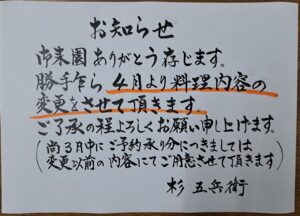 お知らせ
御来園ありがとう存じます。
勝手乍ら4月より料理内容の
変更をさせて頂きます。
ご了承の程よろしくお願い申し上げます。
(尚3月中にご予約承り分につきましては
変更以前の内容にてご用意させて頂きます)
杉 五兵衛